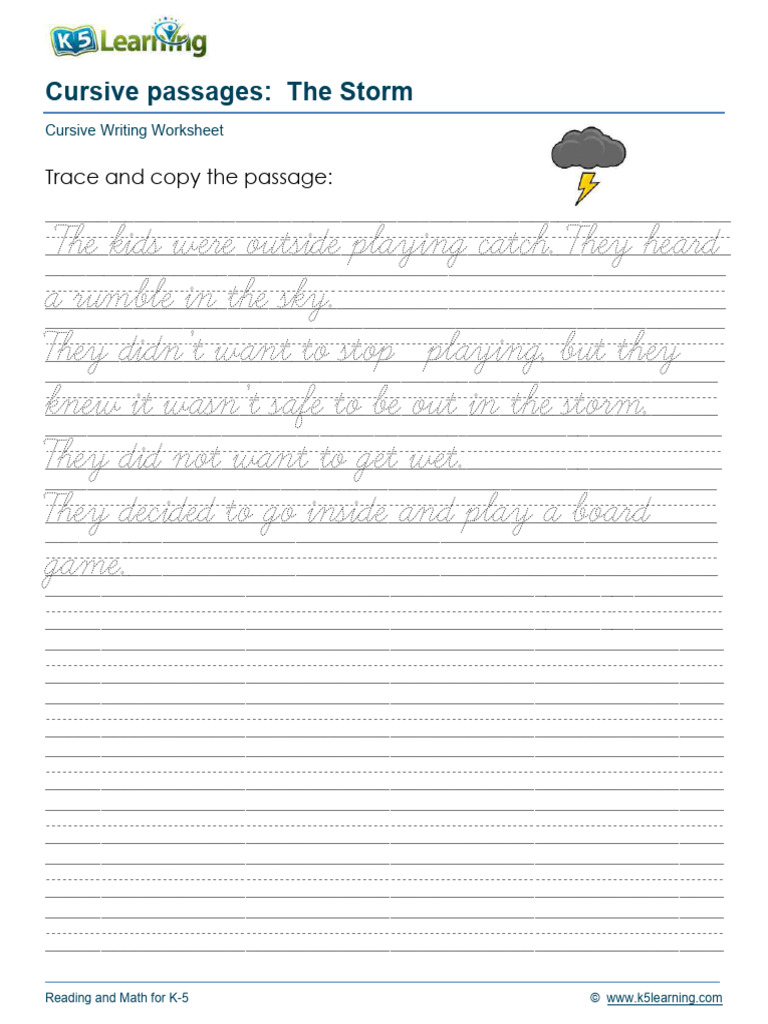 K5 Learning
Cursive passages: The Storm
Cursive Writing Worksheet
Trace and copy the passage:
The kids were outside playing catch. They heard
a rumble in the sky.
They didn't want to stop playing, but they
knew it wasn't safe to be out in the storm.
They did not want to get wet.
They decided to go inside and play a board
game.
Reading and Math for K-5
© www.k5learning.com